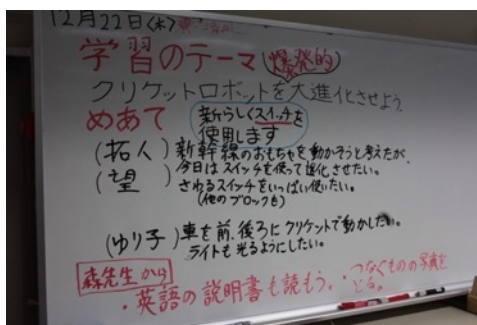 12月22日(木)
学習のテーマ(爆発的)
クリケットロボットを大進化させよう
めあて
新らしくスイッチを
使用します
(拓人)新幹線のおもちゃを動かそうと考えたが、
今日はスイッチを使って進化させたい。
(望)されるスイッチをいっぱい使いたい。
(他のブロックも)
(ゆり子)車を前、後ろにクリケットで動かしたい。
ライトも光るようにしたい。
森先生から
・英語の説明書も読もう。・つなぐものの写真を
とる。